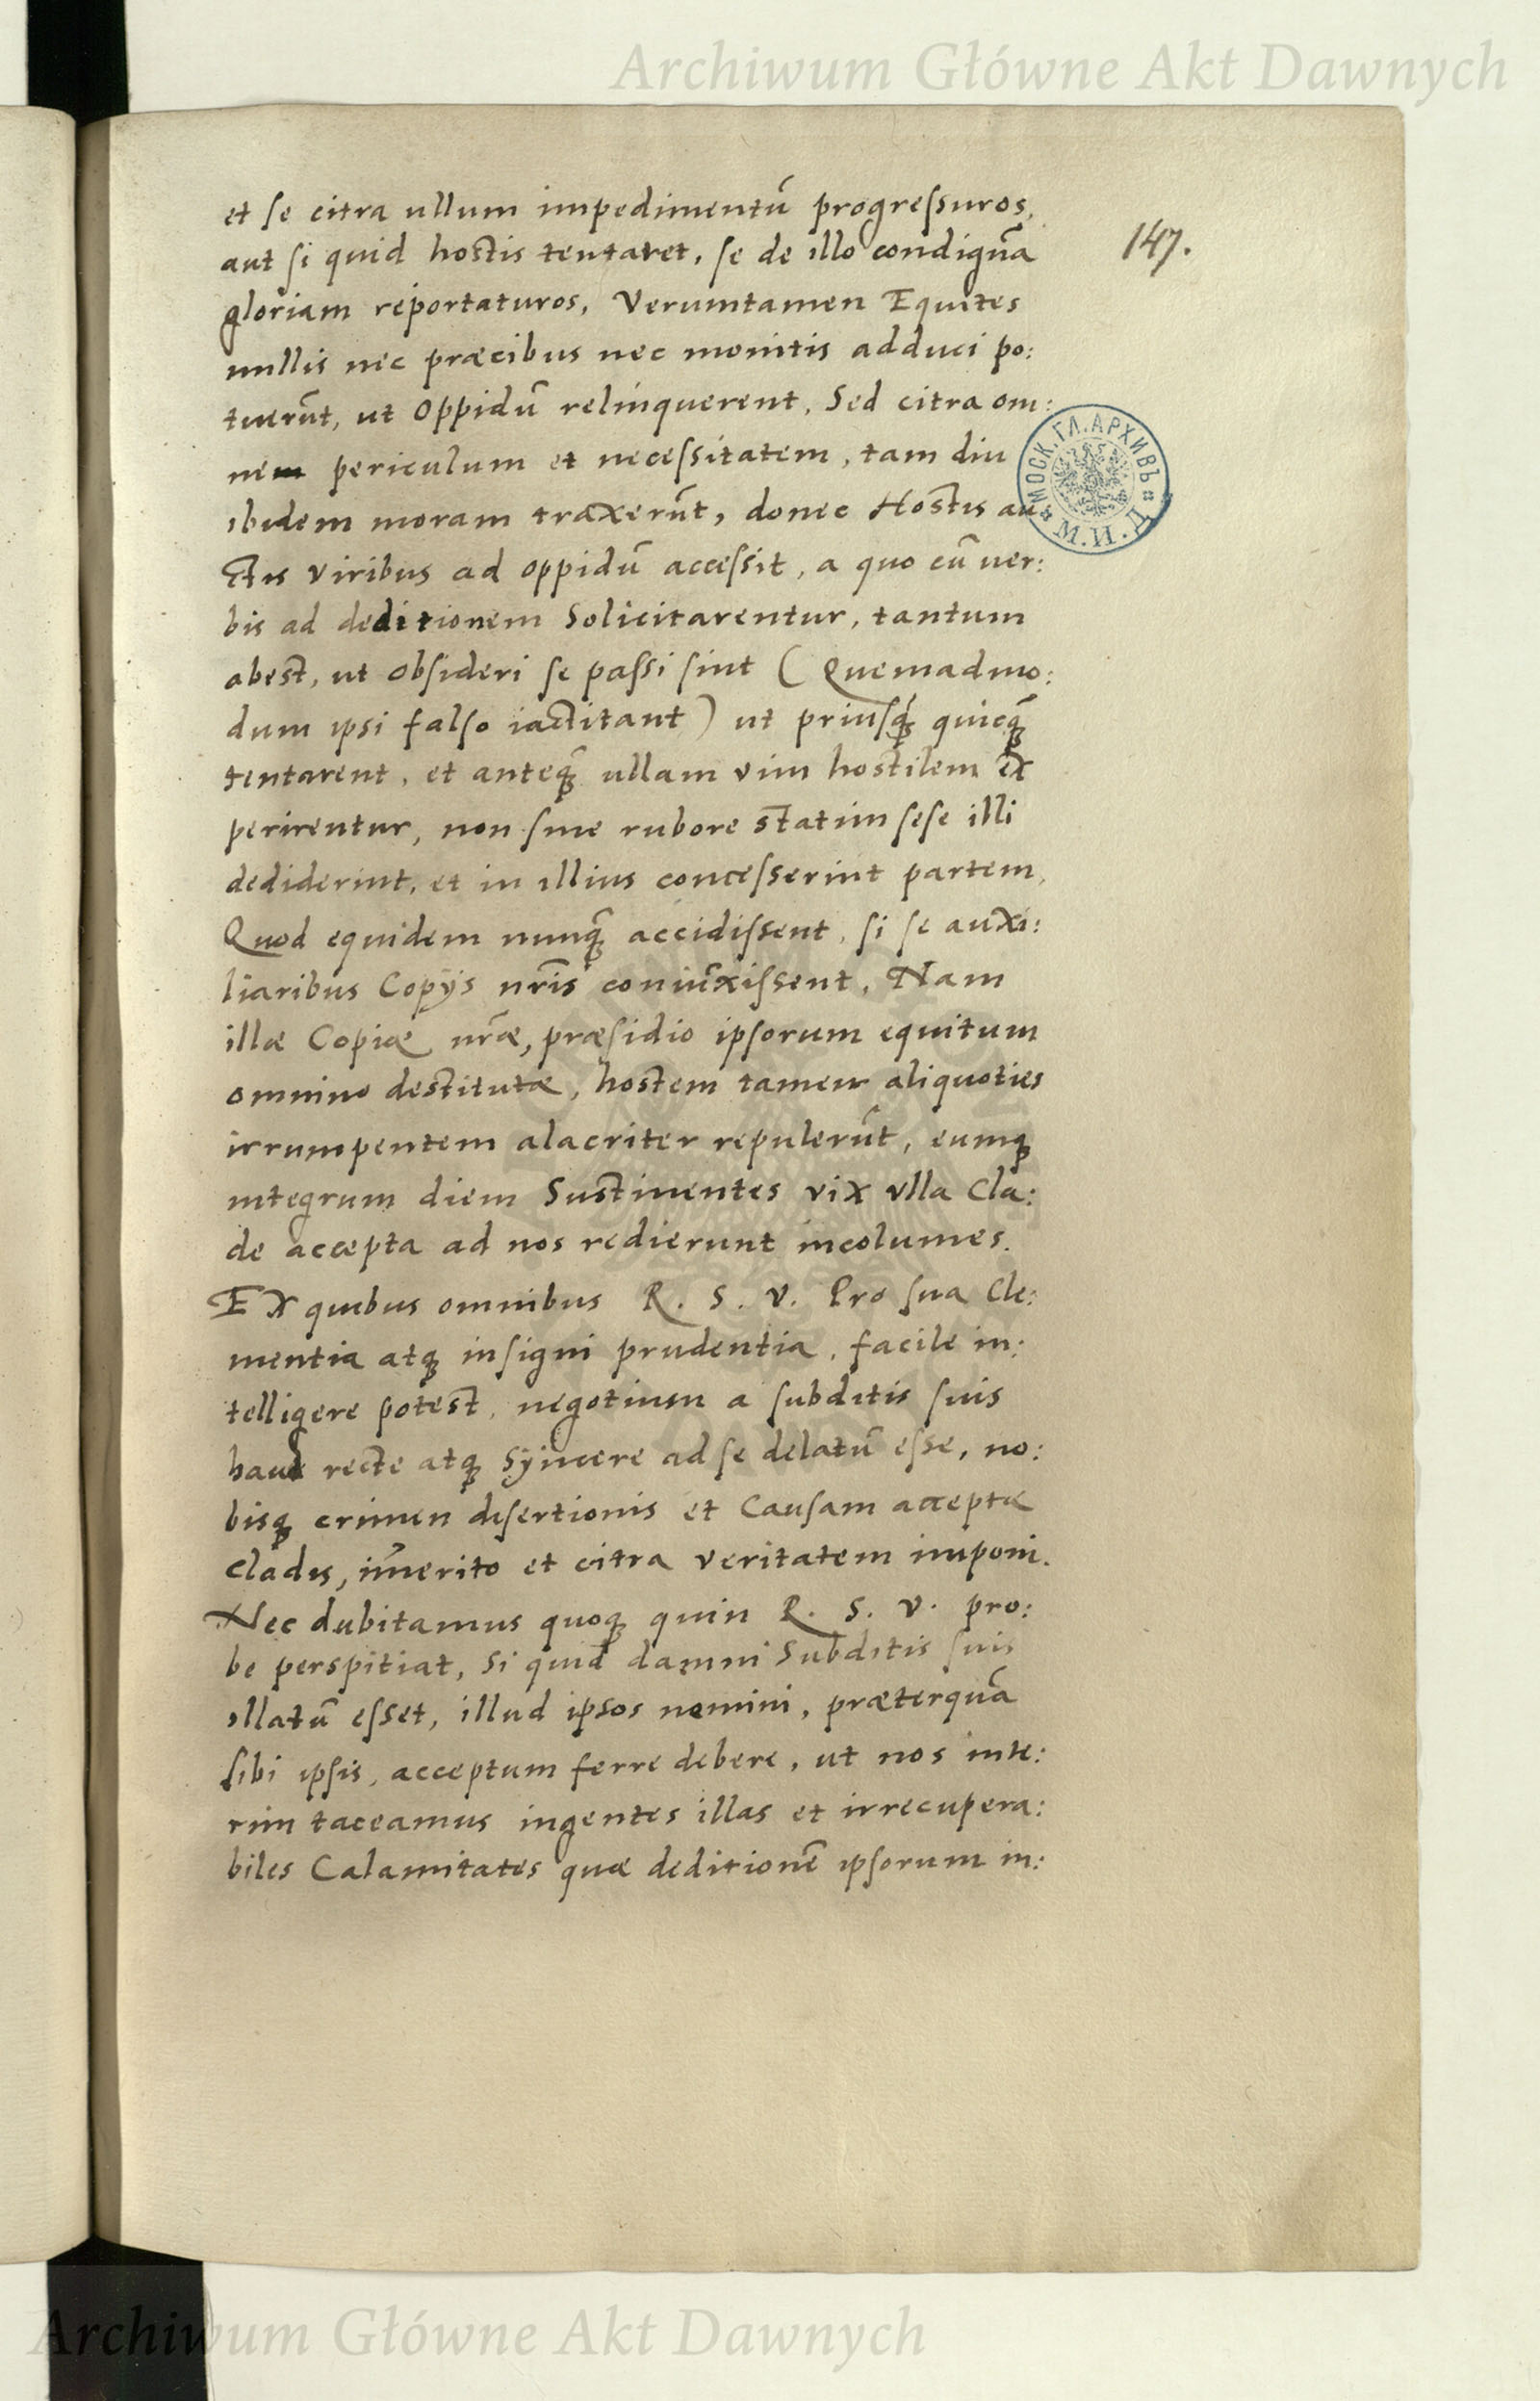 Archiwum Główne Akt Dawnych
147.
et se citra ullum impedimentū progressuros,
aut si quid hostis tentaret, se de illo condignā
gloriam reportaturos, Verumtamen Equites
nullis nec præcibus nec monitis adduci po:
tuerūt, ut Oppidū relinquerent, Sed citra om:
nem periculum et necessitatem, tam diu
ibidem moram traxerūt, donec Hostis au
ctis viribus ad oppidū accessit, a quo cū ver:
bis ad deditionem Solicitarentur, tantum
abest, ut obsideri se passi sint (Quemadmo:
dum ipsi falso iactitant) ut priusq̃ quicq̃
tentarent, et anteq̃ ullam vim hostilem ex
perirentur, non sine rubore statim sese illi
dediderint, et in illius concesserint partem,
Quod equidem nunq̃ accidissent, si se auxi:
liaribus Copijs nr̃is coniūxissent, Nam
illæ Copiæ nr̃æ, præsidio ipsorum equitum
omnino destitutæ, hostem tamen aliquoties
irrumpentem alacriter repulerūt, eumq
integrum diem Sustinentes vix vlla Cla:
de accepta ad nos redierunt incolumes.
Ex quibus omnibus R. S. V. Pro sua Cle:
mentia atq insigni prudentia, facile in:
telligere potest, negotium a subditis suis
haud recte atq Syncere ad se delatū esse, no:
bisq crimen desertionis et Causam acceptæ
Cladis, im̄erito et citra veritatem imponi.
Nec dubitamus quoq quin R. S. V. pro:
be perspitiat, Si quid damni Subditis suis
illatū esset, illud ipsos nemini, præterquā
sibi ipsis, acceptum ferre debere, ut nos inte:
rim taceamus ingentes illas et irrecupera:
biles Calamitates quæ deditionē ipsorum in:
МОСК. ГЛ. АРХИВЪ
М. И. Д.
Archiwum Główne Akt Dawnych